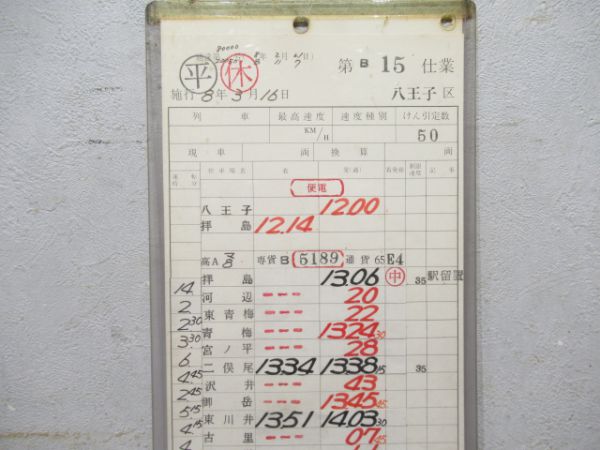 第 B 15 仕業
平 休
施行 8年3月16日 八王子 区
列 車 最高速度 速度種別 けん引定数
KM/H 50
現 車 両 換 算 両
運転時分 停車場名 着 発(通) 着発線 制限速度 記事
便電
八王子 12.00
拝島 12.14
高A 専貨 B 5189 通貨 65 E4
拝島 13.06 中 35 駅留置
14 河辺 --- 20
2 東青梅 --- 22
2 30 青梅 --- 1324 30
3 30 宮ノ平 --- 28
6 二俣尾 13.34 13.38 15 35
4 45 沢井 --- 43
2 45 御岳 --- 1345 45
5 15 東川井 13.51 14.03 30
4 15 古里 --- 07 45